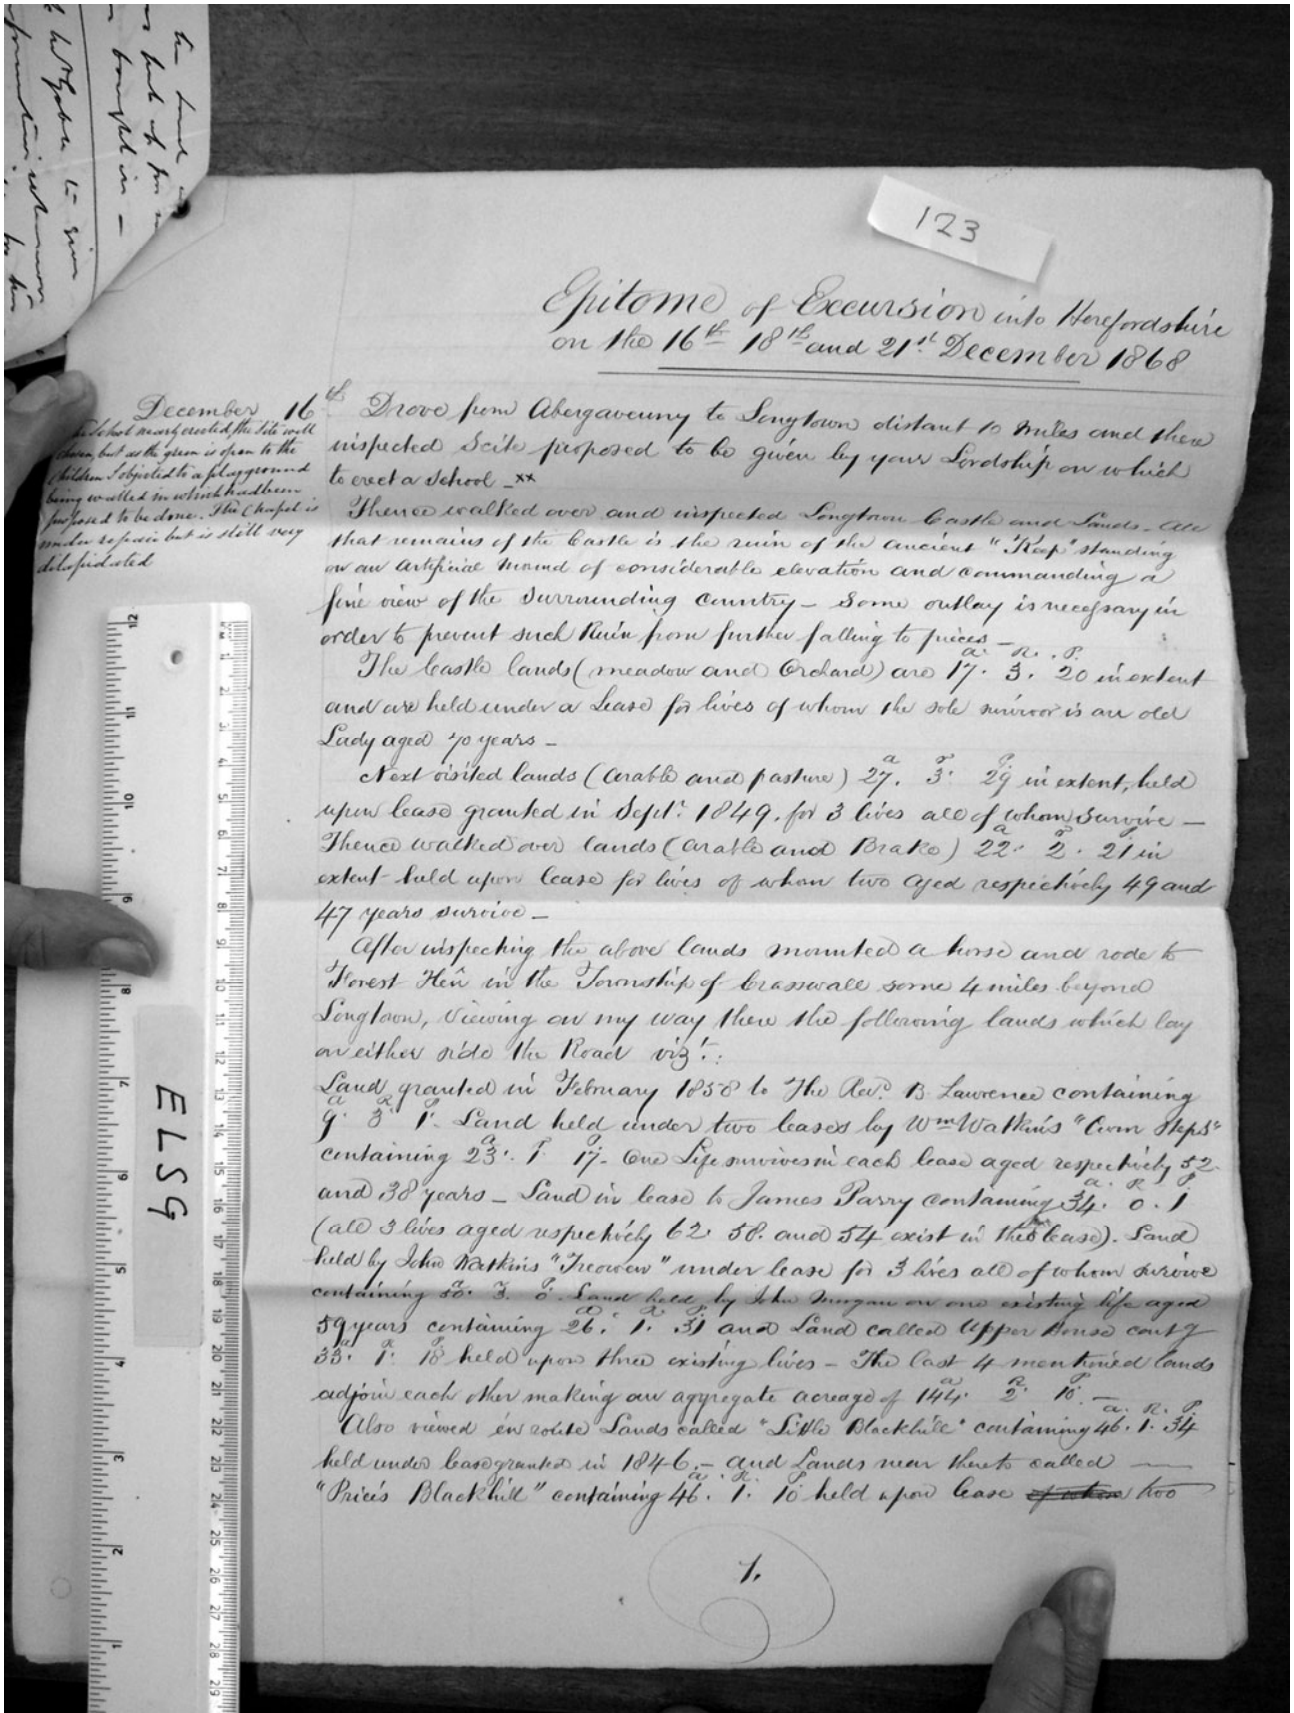 123
Epitome of Excursion into Herefordshire
on the 16th 18th and 21st December 1868
December 16th
School nearly erected, the site well
chosen, but as the green is open to the
children I objected to a playground
being walled in which had been
proposed to be done. The Chapel is
under repair but is still very
dilapidated
Drove from Abergavenny to Longtown distant 10 miles and there
inspected Scite proposed to be given by your Lordship on which
to erect a School - xx
Thence walked over and inspected Longtown Castle and Lands - All
that remains of the Castle is the ruin of the ancient "Keep" standing
on an artificial mound of considerable elevation and commanding a
fine view of the surrounding country - Some outlay is necessary in
order to prevent such Ruin from further falling to pieces -
The Castle lands (meadow and Orchard) are 17a. 3R. 20P in extent
and are held under a Lease for lives of whom the sole survivor is an old
Lady aged 70 years -
Next visited lands (arable and pasture) 27a. 3r. 29P in extent, held
upon lease granted in Septr. 1849, for 3 lives all of whom survive -
Thence walked over lands (arable and Brake) 22a. 2r. 21P in
extent held upon lease for lives of whom two aged respectively 49 and
47 years survive -
After inspecting the above lands mounted a horse and rode to
Forest Hên in the Township of Crasswall some 4 miles beyond
Longtown, viewing on my way there the following lands which lay
on either side the Road vizt.:
Land granted in February 1858 to The Revd. B. Lawrence containing
9a. 3R. 1P. Land held under two leases by Wm Watkins "Cwm Steps"
containing 23a. 1r. 17P. One Life survives in each lease aged respectively 52
and 38 years - Land in lease to James Parry containing 34a. 0R. 1P
(all 3 lives aged respectively 62. 58. and 54 exist in this lease). Land
held by John Watkins "Treowen" under lease for 3 lives all of whom survive
containing 50a. 3. 0P. Land held by John Morgan on one existing life aged
59 years containing 26a. 1R. 31P and Land called Upper House contg
33a. 1R. 18P held upon three existing lives - The last 4 mentioned lands
adjoin each other making an aggregate acreage of 144a. 2R. 10P. -
Also viewed en route Lands called "Little Blackhill" containing 46a. 1R. 34P
held under lease granted in 1846. - and Lands near thereto called
"Price's Blackhill" containing 46a. 1R. 10P held upon lease of whom two
1.
ELSG